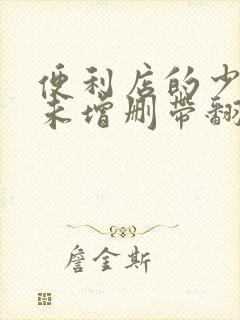 便利店的少
未增删带翻
詹金斯